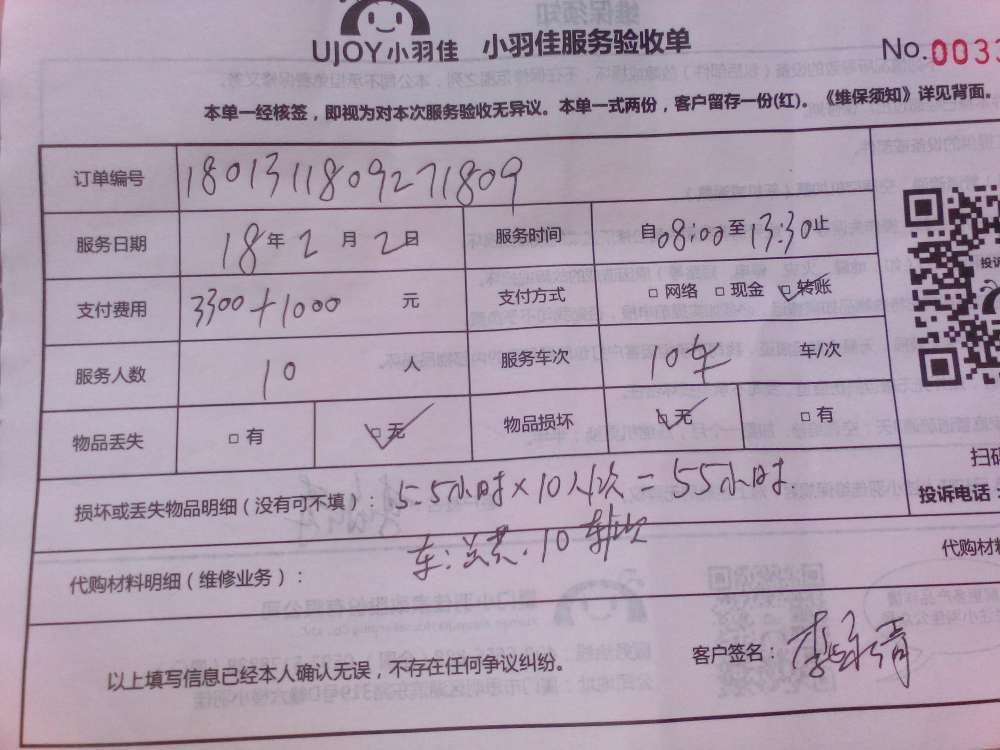 UJOY小羽佳 小羽佳服务验收单
No.0033
本单一经核签，即视为对本次服务验收无异议。本单一式两份，客户留存一份(红)。《维保须知》详见背面。
订单编号 1801311809271809
服务日期 18年2月2日 服务时间 自08:00至13:30止
支付费用 3300+1000 元 支付方式 □网络 □现金 ☑转账
服务人数 10 人 服务车次 10车 车/次
物品丢失 □有 ☑无 物品损坏 ☑无 □有
扫码
投诉电话：
损坏或丢失物品明细（没有可不填）：5.5小时×10人/次=55小时
车：共 10 次
代购材料明细（维修业务）： 代购材料
以上填写信息已经本人确认无误，不存在任何争议纠纷。 客户签名：